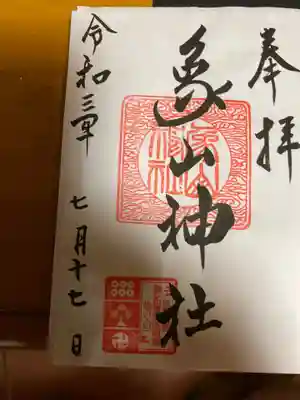 奉拝
象山神社
令和三年
七月十七日